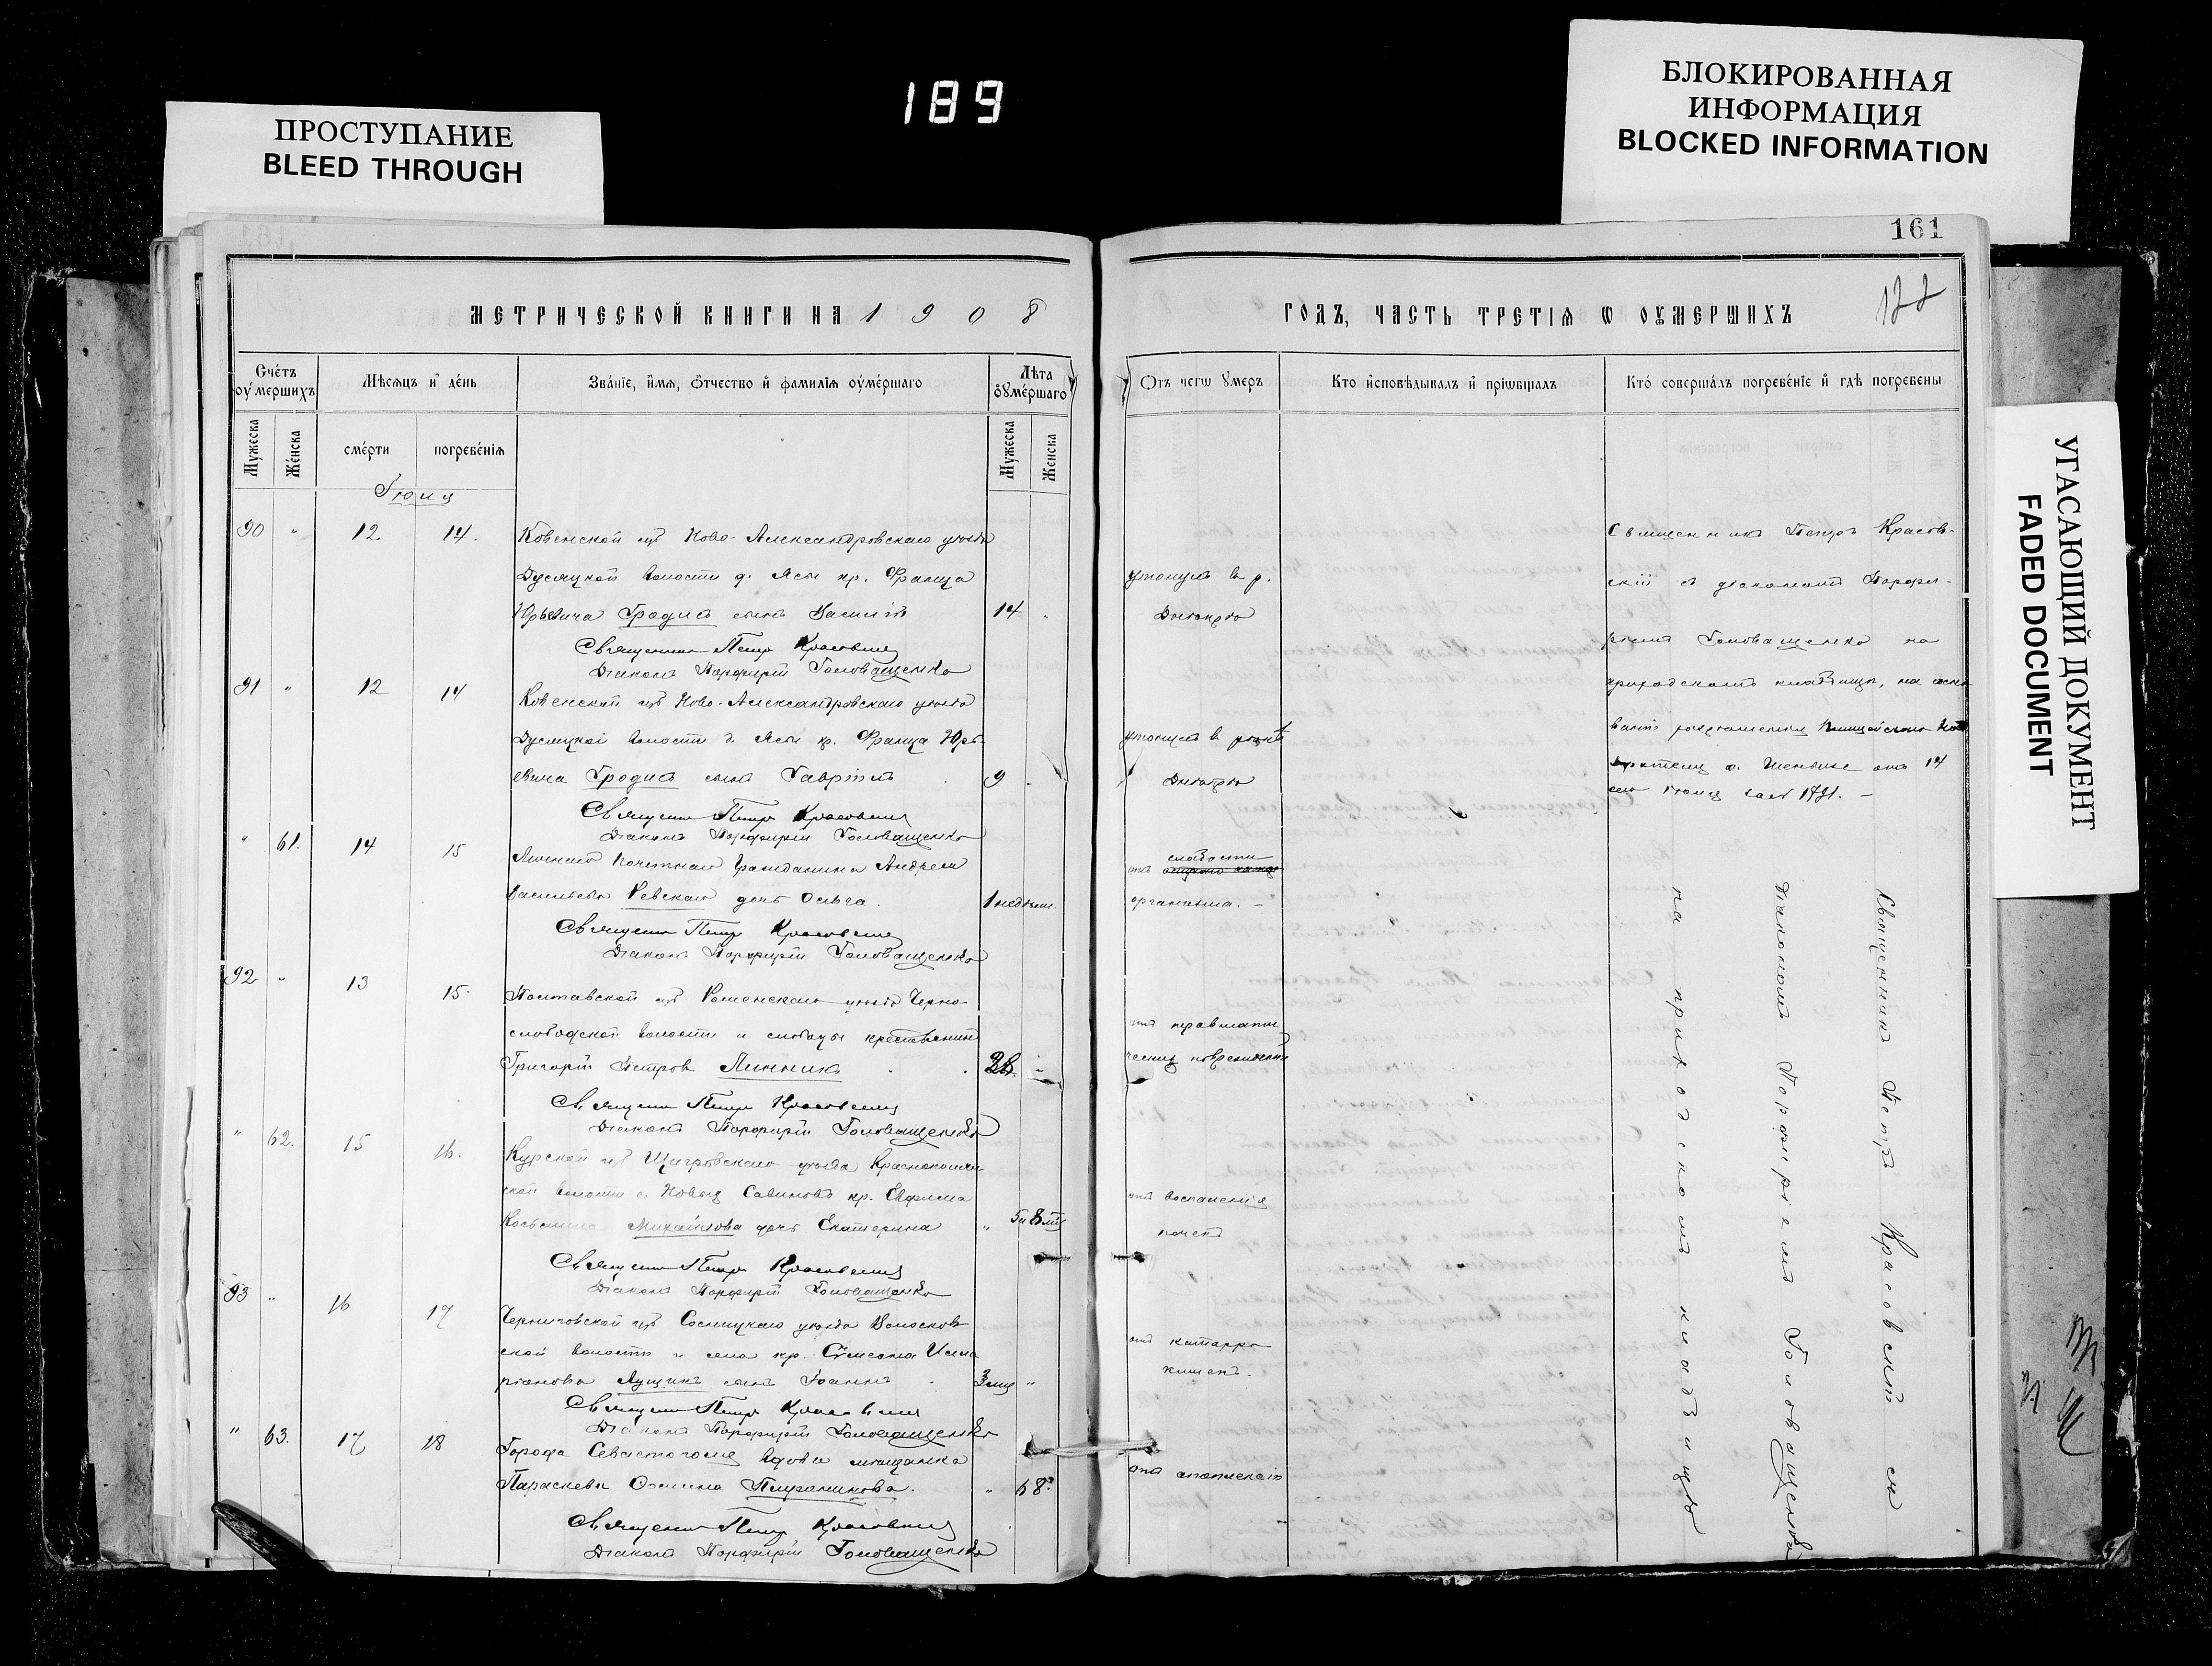 189
ПРОСТУПАНИЕ
BLEED THROUGH
БЛОКИРОВАННАЯ
ИНФОРМАЦИЯ
BLOCKED INFORMATION
УГАСАЮЩИЙ ДОКУМЕНТ
FADED DOCUMENT
161
МЕТРИЧЕСКОЙ КНИГИ НА 1908
ГОДЪ, ЧАСТЬ ТРЕТІЯ Ѡ ОУМЕРШИХЪ
Счетъ оумершихъ
Мѣсяцъ и день
Званіе, имя, отчество и фамилія оумершаго
Лѣта оумершаго
Отъ чегѡ умеръ
Кто исповѣдывалъ и пріѡбщалъ
Кто совершалъ погребеніе и гдѣ погребены
Мужеска
Женска
смерти
погребенія
Мужеска
Женска
Іюнь
90 " 12 14.
Ковенской губ Ново-Александровскаго уѣзда
Дусяцкой волости д. Ясы кр. Франца
Юрьевича Гродисъ сынъ Василій 14
утонулъ въ р.
Днѣпрѣ
Священникъ Петръ Красовскій
Діаконъ Порфирій Головащенко
91 " 12 14
Ковенской губ Ново-Александровскаго уѣзда
Дусяцкой волости д. Ясы кр. Франца Юрь-
евича Гродисъ сынъ Гавріилъ 9
утонулъ въ
Днѣпрѣ
Священникъ Петръ Красовскій
Діаконъ Порфирій Головащенко
Священникъ Петръ Красов-
скій съ діакономъ Порфи-
ріемъ Головащенко на
приходскомъ кладбищѣ, на осно
ваніи
отъ 14
сего Іюня за № 1791. –
" 61. 14 15
Личнаго Почетнаго Гражданина Андрея
Васильева Невскаго дочь Ольга. 1 недѣли.
отъ слабости
организма. –
Священникъ Петръ Красовскій
Діаконъ Порфирій Головащенко
92 " 13 15.
Полтавской губ Роменскаго уѣзда Черно-
слободской волости и слободы крестьянинъ
Григорій Петров Линникъ
отъ травмати
ческихъ поврежденій
Священникъ Петръ Красовскій
Діаконъ Порфирій Головащенко
" 62. 15 16.
Курской губ Щигровскаго уѣзда
ской волости с. Новыхъ Савиновъ кр. Евфима
Косьмина Михайлова дочь Екатерина "
отъ воспаленія
почекъ
Священникъ Петръ Красовскій
Діаконъ Порфирій Головащенко
93 " 16 17
Черниговской губ Сосницкаго уѣзда Волосков
ской волости и села кр. Сѵмеона Илла
ріонова Лущикъ сынъ Іоаннъ 3 мѣс "
отъ катарра
кишекъ.
Священникъ Петръ Красовскій
Діаконъ Порфирій Головащенко
" 63. 17 18
Города Севастополя вдова мѣщанка
Параскева Осипова " 68.
отъ апоплексіи
Священникъ Петръ Красовскій
Діаконъ Порфирій Головащенко
Священникъ Петръ Красовскій съ
Діакономъ Порфиріемъ Головащенко
на приходскомъ кладбищѣ